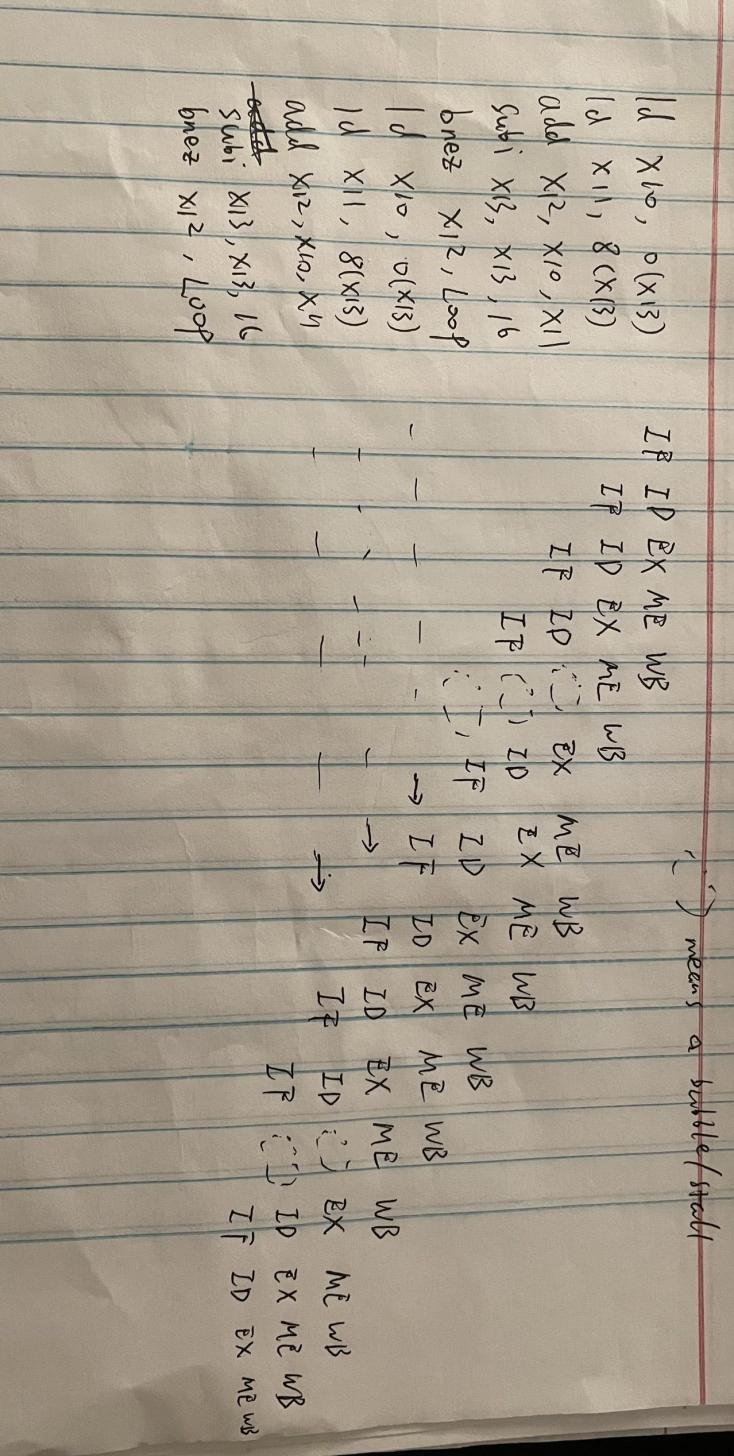 (⁐) means a bubble/stall
ld x10, 0(x13) IF ID EX ME WB
ld x11, 8(x13) IF ID EX ME WB
add x12, x10, x11 IF ID EX ME WB
subi x13, x13, 16 IF ID EX ME WB
bnez x12, Loop IF ID EX ME WB
ld x10, 0(x13) - - - - - → IF ID EX ME WB
ld x11, 8(x13) → IF ID EX ME WB
add x12, x10, x11 - - - - → IF ID EX ME WB
subi x13, x13, 16 IF ID EX ME WB
bnez x12, Loop IF ID EX ME WB